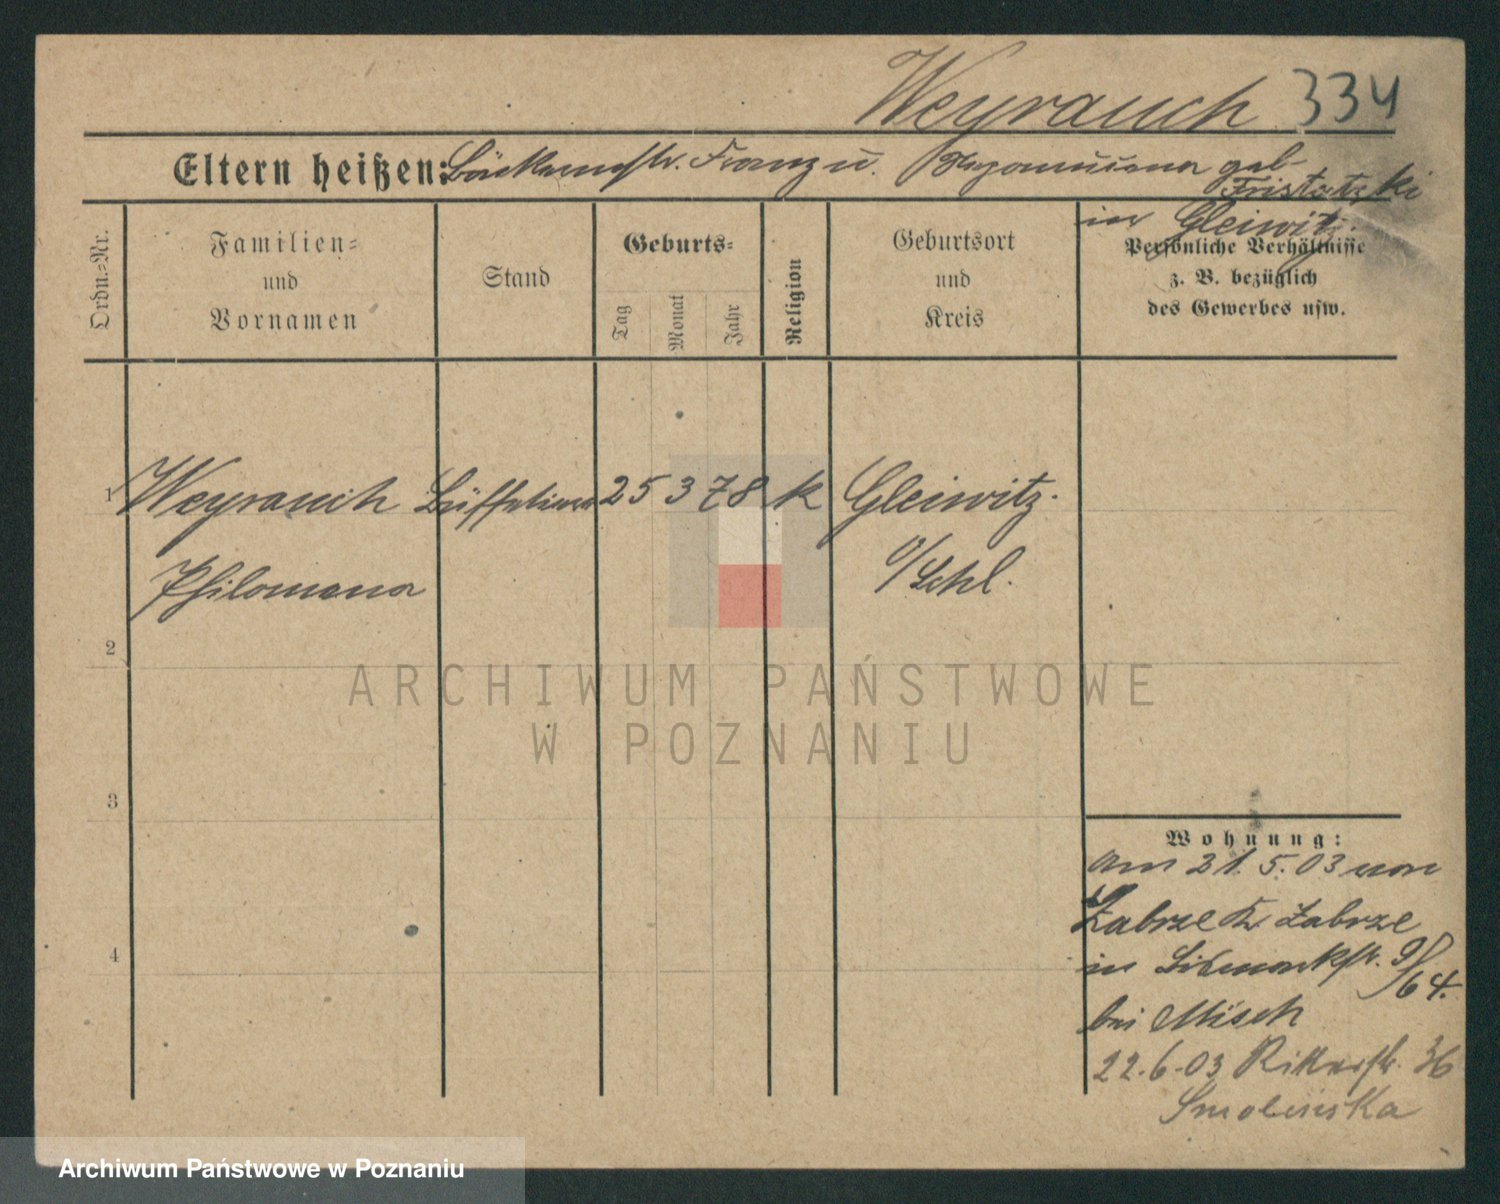 Weyrauch 334
Eltern heißen: Bäckermstr. Franz u. geb.
in Gleiwitz.
Ordn.-Nr.
Familien-
und
Vornamen
Stand
Geburts-
Tag
Monat
Jahr
Religion
Geburtsort
und
Kreis
Persönliche Verhältnisse
z. B. bezüglich
des Gewerbes usw.
1 Weyrauch Büffetiere 25 3 78 k Gleiwitz.
Philomena O/Schl.
2
3
4
ARCHIWUM PAŃSTWOWE
W POZNANIU
Wohnung:
am 21.5.03 von
Zabrze Kr. Zabrze
in Bismarckstr. 9/
64.
bei Misch
22.6.03 Ritterstr. 36
Smolinska
Archiwum Państwowe w Poznaniu